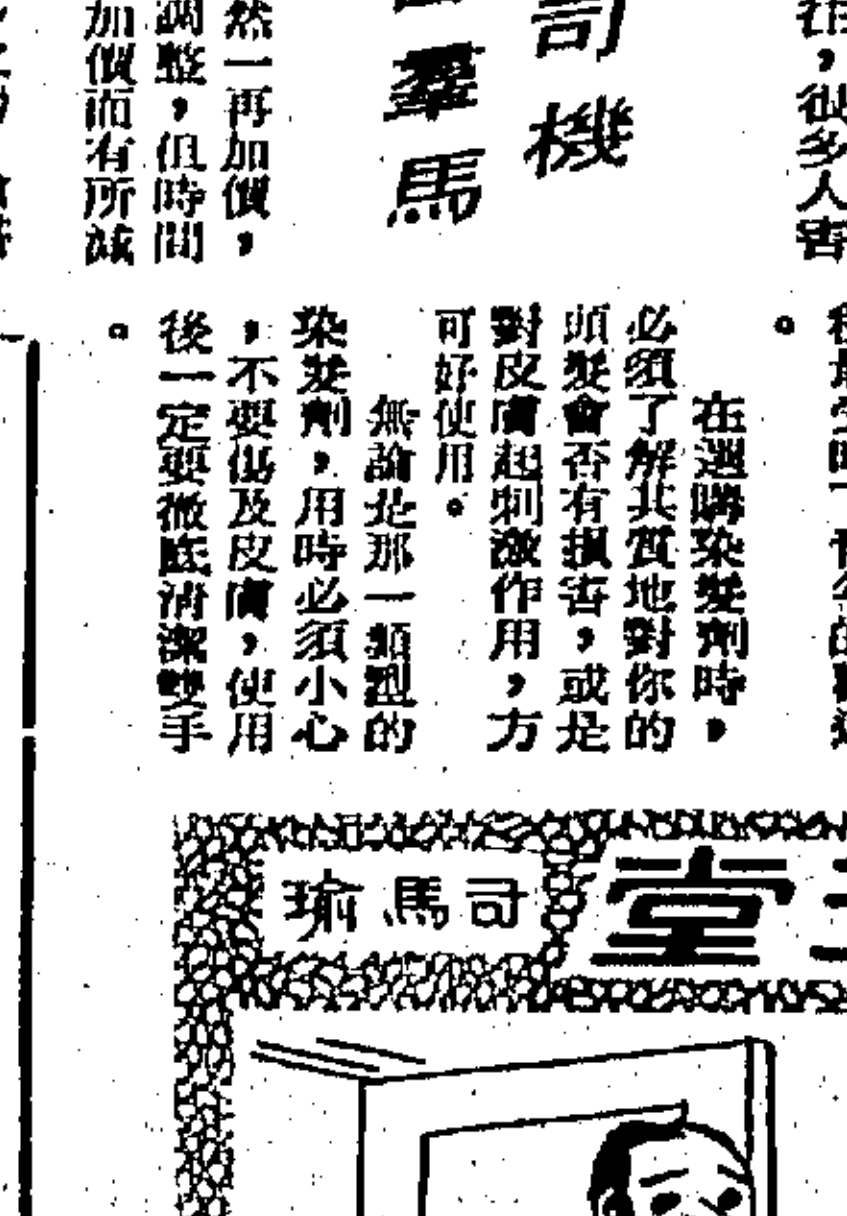 往,很多人害
。
司機
羣馬
然一再加價,
調整,但時間
加價而有所減
在選購染髮劑時,
必須了解其質地對你的
頭髮會否有損害,或是
對皮膚起刺激作用,方
可好使用。
無論是那一類型的
染髮劑,用時必須小心
,不要傷及皮膚,使用
後一定要徹底清潔雙手
。
堂
司馬瑜